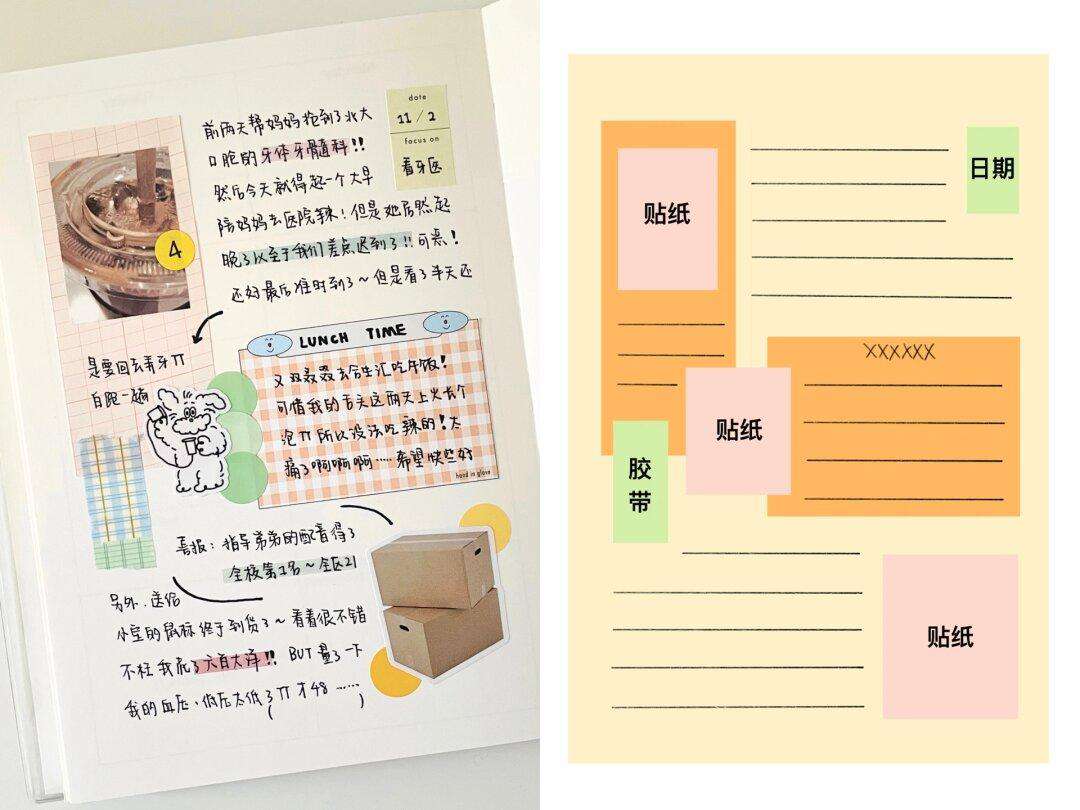 前两天帮妈妈抢到了北大
口腔的牙体牙髓科!!
然后今天就得起一个大早
陪妈妈去医院辣!但是她居然起
晚了以至于我们差点迟到了!!可恶!
还好最后准时到了~但是看了半天还
date
11/2
focus on
看牙医
4
是要回去弄牙TT
白跑一趟
LUNCH TIME
又双叒叕去合生汇吃午饭!
可惜我的舌头这两天上火长个
泡TT所以没法吃辣的!太
痛了啊啊啊……希望快些好
hand in glove
喜报:指导弟弟的配音得了
全校第1名~全区21
另外,送给
小宝的鼠标终于到货了~看着很不错
不枉我花了六百大洋!! BUT量了一下
我的血压、低压太低了TT才48……
( )
贴纸
日期
XXXXXX
贴纸
胶
带
贴纸